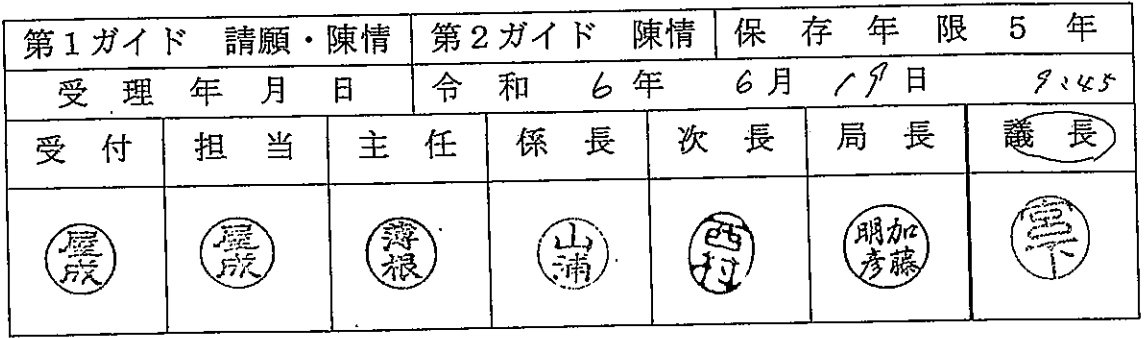 第1ガイド 請願・陳情 第2ガイド 陳情 保存年限5年
受理年月日 令和6年6月19日 9:45
受付 担当 主任 係長 次長 局長 議長
屋成 屋成 薄根 山浦 西村 加藤明彦 宮下